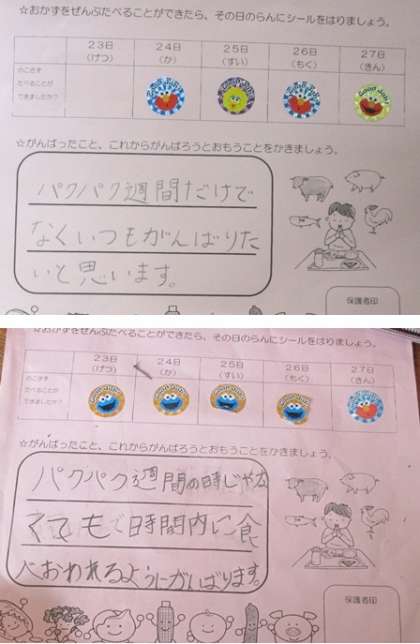 ☆おかずをぜんぶたべることができたら、その日のらんにシールをはりましょう。
23日 24日 25日 26日 27日
(げつ) (か) (すい) (もく) (きん)
のこさず
たべることが
できましたか?
☆がんばったこと、これからがんばろうとおもうことをかきましょう。
パクパク週間だけで
なくいつもがんばりた
いと思います。
保護者印
☆おかずをぜんぶたべることができたら、その日のらんにシールをはりましょう。
23日 24日 25日 26日 27日
(げつ) (か) (すい) (もく) (きん)
のこさず
たべることが
できましたか?
☆がんばったこと、これからがんばろうとおもうことをかきましょう。
パクパク週間の時じゃな
くてもで時間内に食
べおわれるようにがんばります。
保護者印